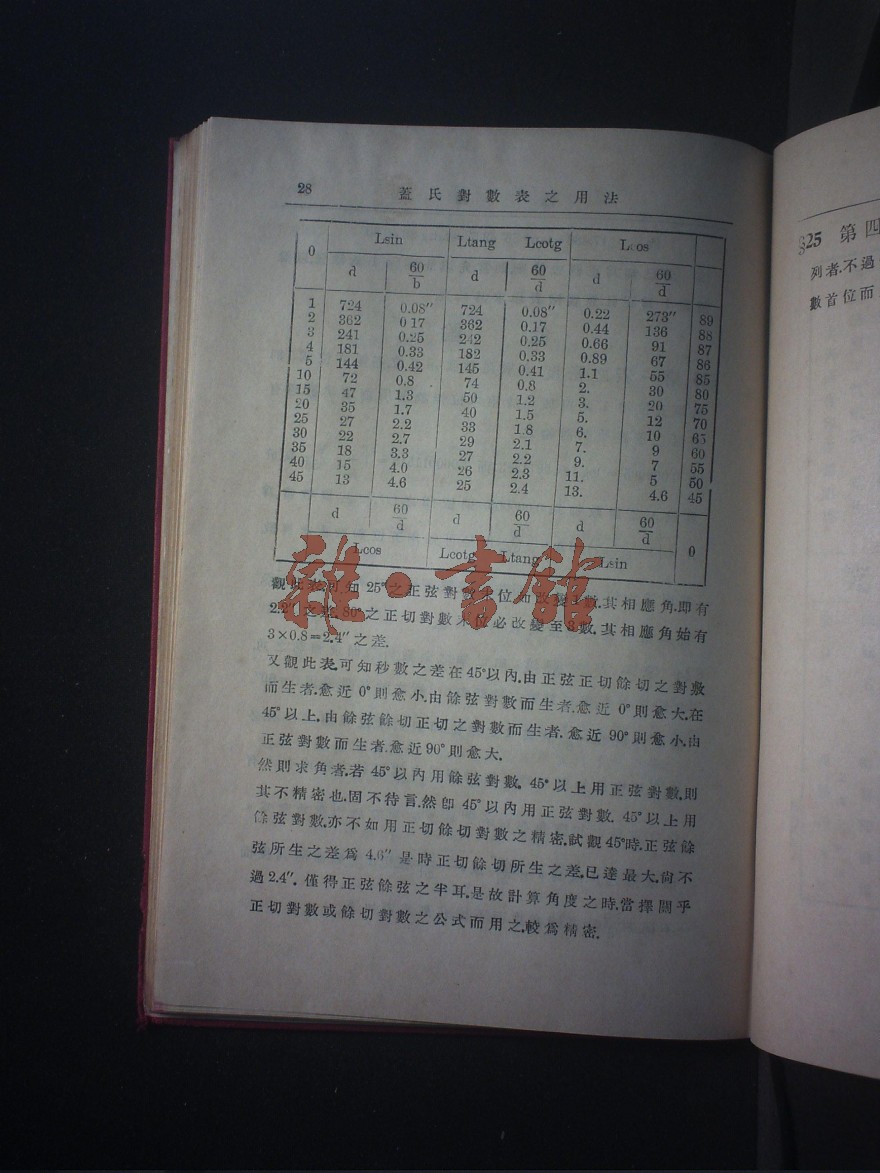 28 蓋氏對數表之用法
θ Lsin Ltang Lcotg Lcos
d 60/b d 60/d d 60/d
1 724 0.08″ 724 0.08″ 0.22 273″ 89
2 362 0 17 362 0.17 0.44 136 88
3 241 0.25 242 0.25 0.66 91 87
4 181 0.33 182 0.33 0.89 67 86
5 144 0.42 145 0.41 1.1 55 85
10 72 0.8 74 0.8 2. 30 80
15 47 1.3 50 1.2 3. 20 75
20 35 1.7 40 1.5 5. 12 70
25 27 2.2 33 1.8 6. 10 65
30 22 2.7 29 2.1 7. 9 60
35 18 3.3 27 2.2 9. 7 55
40 15 4.0 26 2.3 11. 5 50
45 13 4.6 25 2.4 13. 4.6 45
d 60/d d 60/d d 60/d θ
Lcos Lcotg Ltang Lsin
觀此表可知 25°之正弦對數末位改變數.其相應角.即有
2.2″之差. 80°之正切對數末位必改變至3數.其相應角始有
3×0.8=2.4″之差.
又觀此表.可知秒數之差在45°以內.由正弦正切餘切之對數
而生者.愈近 0°則愈小.由餘弦對數而生者.愈近 0°則愈大.在
45°以上.由餘弦餘切正切之對數而生者.愈近 90°則愈小.由
正弦對數而生者.愈近90°則愈大.
然則求角者.若 45°以內用餘弦對數. 45°以上用正弦對數.則
其不精密也.固不待言.然卽 45°以內用正弦對數. 45°以上用
餘弦對數.亦不如用正切餘切對數之精密.試觀45°時.正弦餘
弦所生之差爲 4.6″是時正切餘切所生之差.已達最大.尙不
過2.4″. 僅得正弦餘弦之半耳.是故計算角度之時.當擇關乎
正切對數或餘切對數之公式而用之.較爲精密.
雜·書館
§25 第四
列者.不過
數首位而